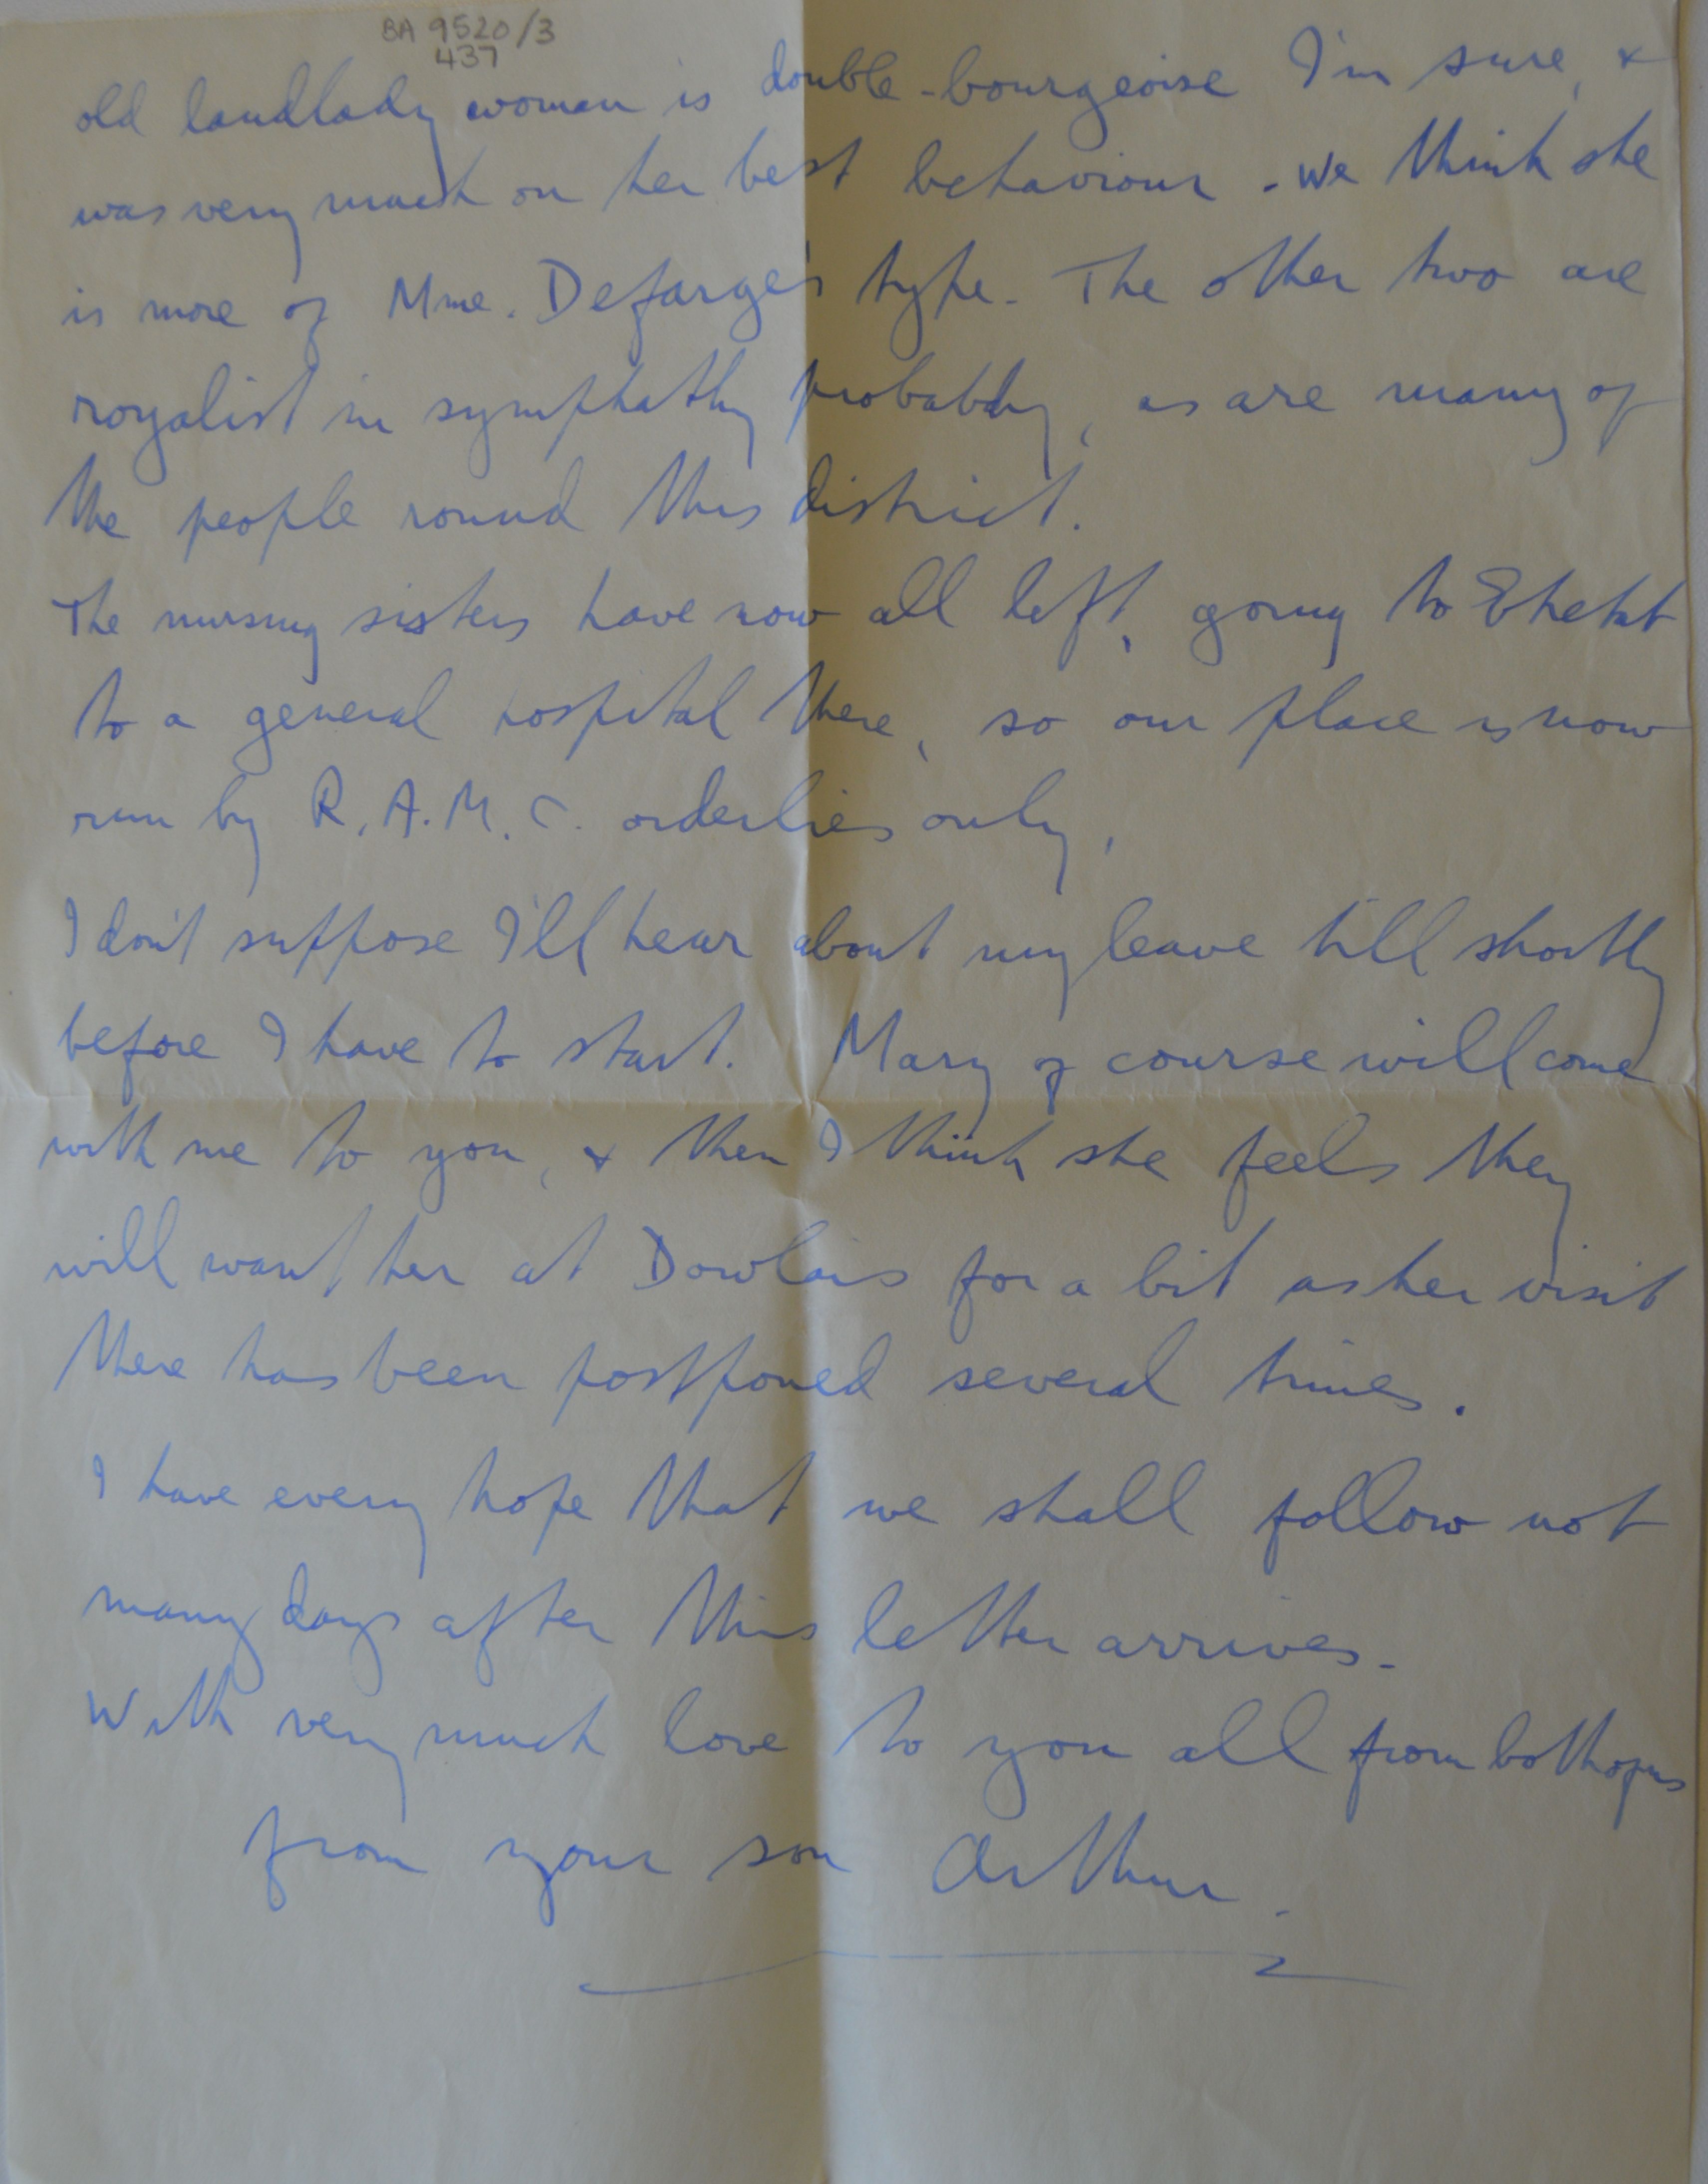 BA 9520/3
437
old landlady woman is double-bourgeoise I'm sure, &
was very much on her best behaviour - We think she
is more of Mme. Defarge's type. The other two are
royalist in symphathy probably, as are many of
the people round this district.
The nursing sisters have now all left, going to
to a general hospital there, so our place is now
run by R.A.M.C. orderlies only,
I don't suppose I'll hear about my leave till shortly
before I have to start. Mary of course will come
with me to you, & then I think she feels they
will want her at Dowlais for a bit as her visit
there has been postponed several times.
I have every hope that we shall follow not
many days after this letter arrives.
With very much love to you all from both of us
from your son Arthur.